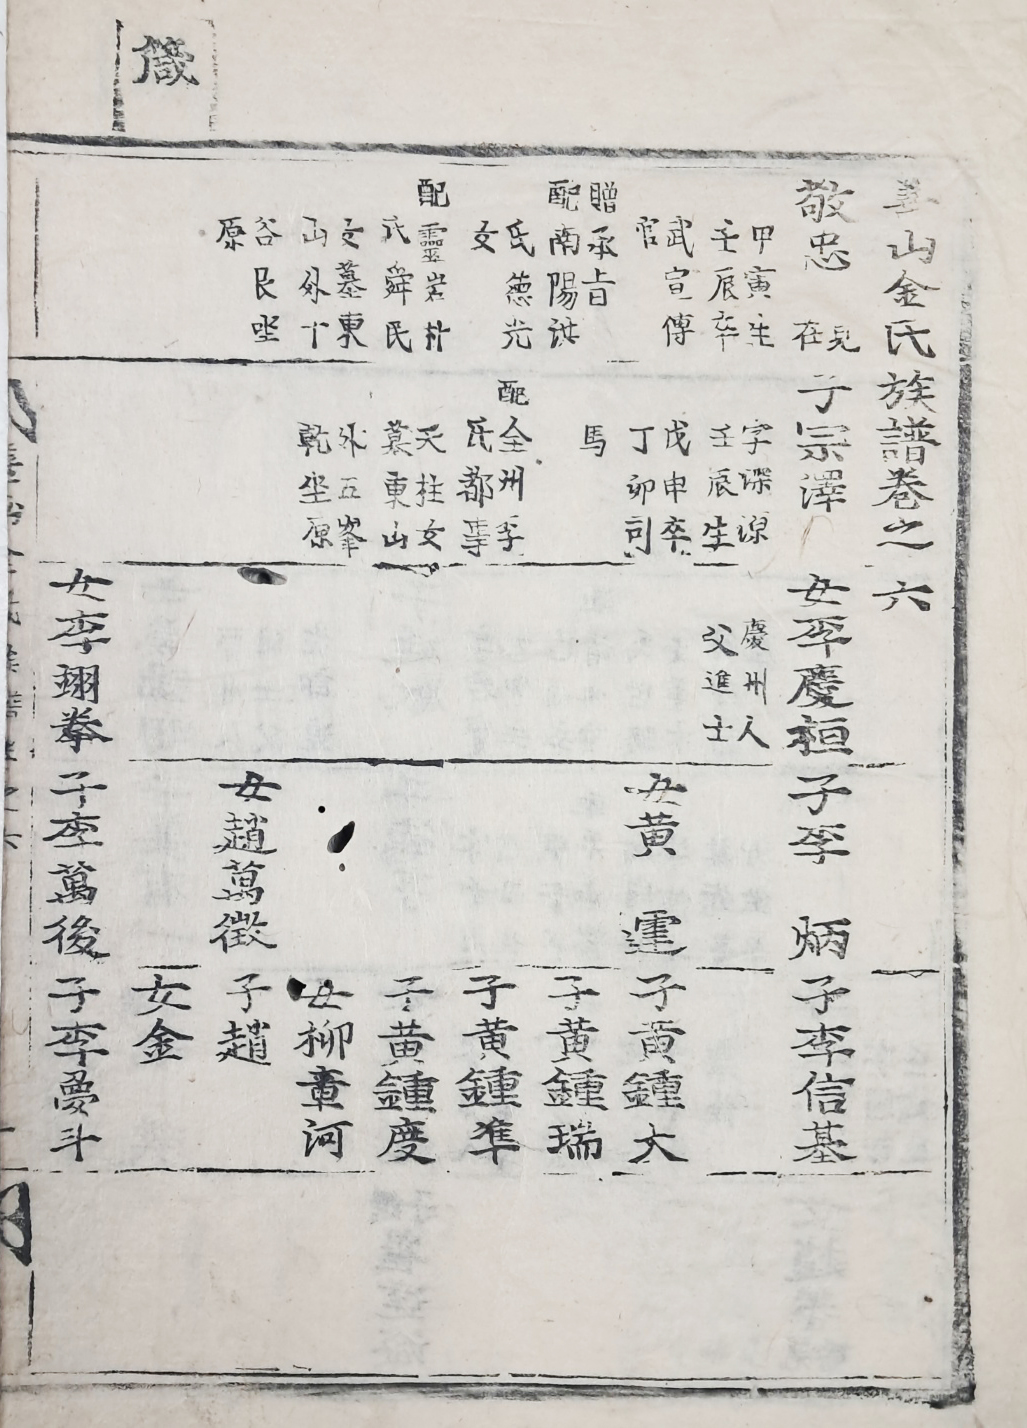 儀
善山金氏族譜卷之六
敬忠
見
在
甲寅生
壬辰卒
武宣傳
官
贈承旨
配南陽洪
氏德光
女
配靈岩朴
氏舜民
女墓東
山外下
谷艮坐
原
子宗澤
字深源
壬辰生
戊申卒
丁卯司
馬
配全州李
氏都事
天柱女
墓東山
外五峯
乾坐原
女李慶桓
慶州人
父進士
女李翊拳
子李炳
女黃運
女趙萬徵
子李萬後
子李信基
子黃鍾大
子黃鍾瑞
子黃鍾準
子黃鍾慶
女柳章河
子趙
女金
子李夢斗